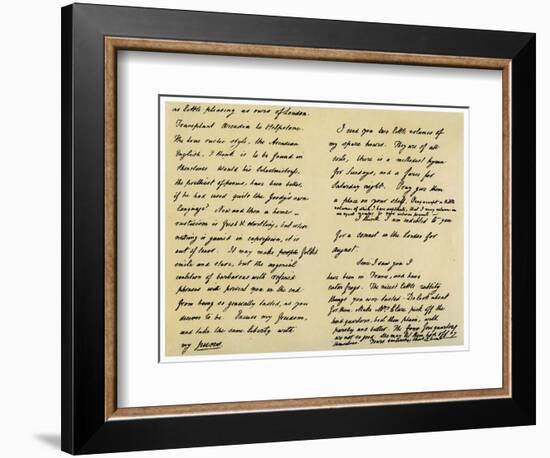 as little pleasing as ours of London.
Transplant Arcadia to Helpstone.
The true rustic style, the Arcadian
English, I think is to be found in
Shenstone. Would his Schoolmistress,
the prettiest of poems, have been better,
if he had used quite the Goody's own
language? Now and then a home
rusticism is fresh & startling, but where
nothing is gained in expression, it is
out of tenor. It may make folks
smile and stare, but the ungenial
coalition of barbarous with refined
phrases will prevent you in the end
from being so generally tasted, as you
deserve to be. Excuse my freedom,
and take the same liberty with
my puns.
I send you two little volumes of
my spare hours. They are of all
sorts, there is a methodist hymn
for Sundays, and a farce for
Saturday night. Pray give them
a place on your shelf. Pray accept a little
volume, of which I have duplicate, that I may return in
equal number to your welcome presents—
I think I am indebted to you
for a sonnet in the London for
August.
Since I saw you I
have been in France, and have
eaten frogs. The nicest little rabbity
things you ever tasted. Do look about
for them. Make Mrs. Clare pick off the
hind quarters, boil them plain, with
parsley and butter. The fore quarters
are not so good. She may let them hop off by
themselves. Yours sincerely